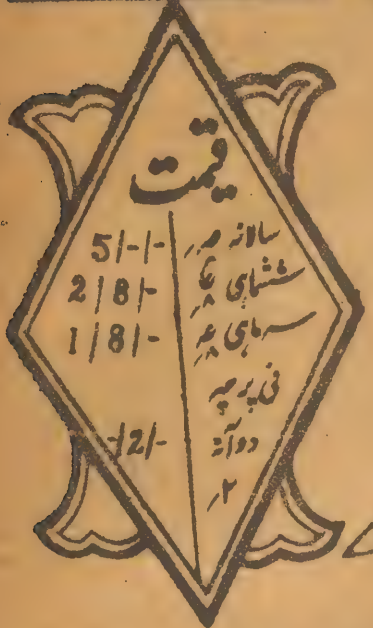 قیمت
سالانہ صر 5/-/-
ششماہی 2/8/-
سہ ماہی 1/8/-
فی پرچہ
دو آنہ -/2/-
۲؍